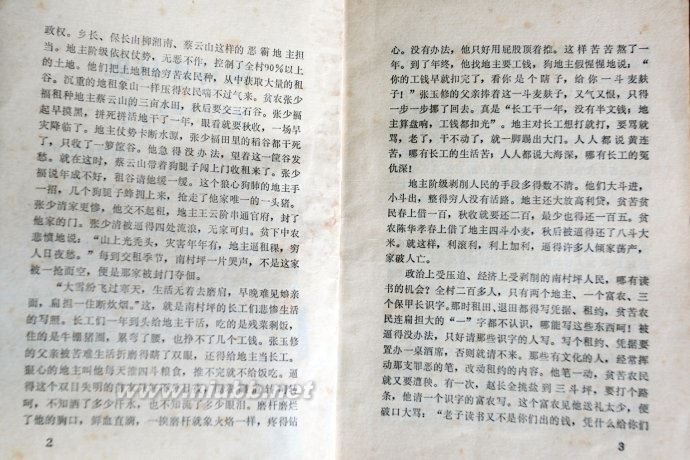 政权。乡长、保长由柳湘南、蔡云山这样的恶霸地主担
当。地主阶级依权仗势，无恶不作，控制了全村90％以上
的土地。他们把土地租给穷苦农民种，从中获取大量的租
谷。沉重的地租象山一样压得农民喘不过气来。贫农张少
福租种地主蔡云山的三亩水田，秋后要交三石谷。张少福
起早摸黑，拼死拼活地干了一年，眼看就要秋收，一场旱
灾降临了。地主仗势卡断水源，张少福田里的稻谷都干死
了，只收了一箩筐谷。他急得没办法，望着这一筐谷发
愁。就在这时，蔡云山带着狗腿子闯上门收租来了。张少
福说年成不好，租谷请他缓一缓。这个狼心狗肺的地主手
一招，几个狗腿子蜂拥上来，抢走了他家唯一的一头猪。
张少清家更惨，他交不起租，地主王云阶串通官府，封了
他家的门。张少清被逼得四处流浪，无家可归。贫下中农
悲愤地说：“山上光秃头，灾害年年有，地主逼租稞，穷
人日夜愁。”每到交租季节，南村坪一片哭声，不是这家
被一抢而空，便是那家被封门夺佃。
“大雪纷飞过寒天，生活无着去磨肩，早晚难见娘亲
面，扁担一住断炊烟。”这，就是南村坪的长工们悲惨生活
的写照。长工们一年到头给地主干活，吃的是残菜剩饭，
住的是牛棚猪圈，累弯了腰，也挣不了几个工钱。张玉修
的父亲被苦难生活折磨得瞎了双眼，还得给地主当长工。
狠心的地主叫他每天推四斗粮食，推不完就不给饭吃。逼
得这个双目失明的
呵，不知洒了多少汗水，也不知流了多少眼泪。磨杆磨烂
了他的胸口，鲜血直淌，一挨磨杆就象火烙一样，疼得钻
2
心。没有办法，他只好用屁股顶着推。这样苦苦熬了一
年。到了年终，他找地主要工钱，狗地主假惺惺地说：
“你的工钱早就扣完了，看你是个瞎子，给你一斗麦麸
子！”张玉修的父亲捧着这一斗麦麸子，又气又恨，只得
一步一步挪了回去。真是“长工干一年，没有半文钱；地
主算盘响，工钱都扣光”。地主对长工想打就打，要骂就
骂，老了，干不动了，就一脚踢出大门。人人都说黄连
苦，哪有长工的生活苦，人人都说大海深，哪有长工的冤
仇深！
地主阶级剥削人民的手段多得数不清。他们大斗进，
小斗出，整得穷人没有活路。地主还大放高利贷，贫苦农
民春上借一百，秋收就要还二百，最少也得还一百五。贫
农陈华孝春上借了地主四斗小麦，秋后被逼还了八斗大
米。就这样，利滚利，利上加利，逼得许多人倾家荡产，
家破人亡。
政治上受压迫、经济上受剥削的南村坪人民，哪有读
书的机会？全村二百多人，只有两个地主、一个富农、三
个保甲长识字。那时租田、退田都得写凭据、租约，贫苦农
民连扁担大的“一”字都不认识，哪能写这些东西呵！被
逼得没办法，只好请那些识字的人写。写个租约、凭据要
置办一桌酒席，否则就请不来。那些有文化的人，经常挥
动那支罪恶的笔，改动租约的内容。他笔一动，贫苦农民
就又要遭殃。有一次，赵长全挑盐到三斗坪，要打个路
条，他请一个识字的富农写。这个富农见他送礼太少，便
破口大骂：“老子读书又不是你们出的钱，凭什么给你们
3
www.nlubb.net